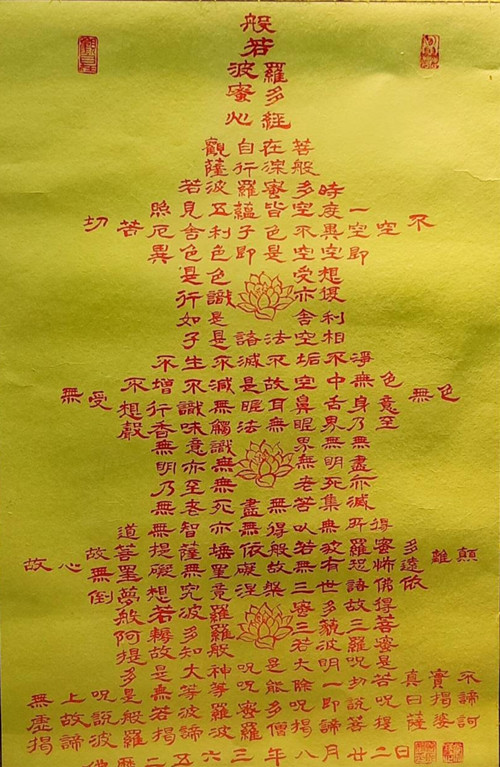 般
若
波羅
蜜多
心經
觀自在菩
薩行深般
若波羅蜜多時
照見五蘊皆空度一
切苦厄舍利子色不異空空不
異色色即是空空即
是色受想
行識亦復
如是舍利
子是諸法空相
不生不滅不垢不淨
不增不減是故空中無色
無受想行識無眼耳鼻舌身意無色
聲香味觸法無眼界乃至
無意識界無無
明亦無無明盡
乃至無老死亦
無老死盡無苦集滅
道無智亦無得以無所得
故菩提薩埵依般若波羅蜜多
故心無罣礙罣礙故無有恐怖遠離顛
倒夢想究竟涅槃三世諸佛依
般若波羅蜜多故得
阿耨多羅三藐三菩
提故知般若波羅蜜
多是大神咒是大明咒是
無上咒是無等等咒能除一切苦真實不
虛故說般若波羅蜜多咒即說咒曰揭諦
揭諦波羅揭諦波羅僧揭諦菩提薩婆訶
佛曆二五六三年八月廿二日